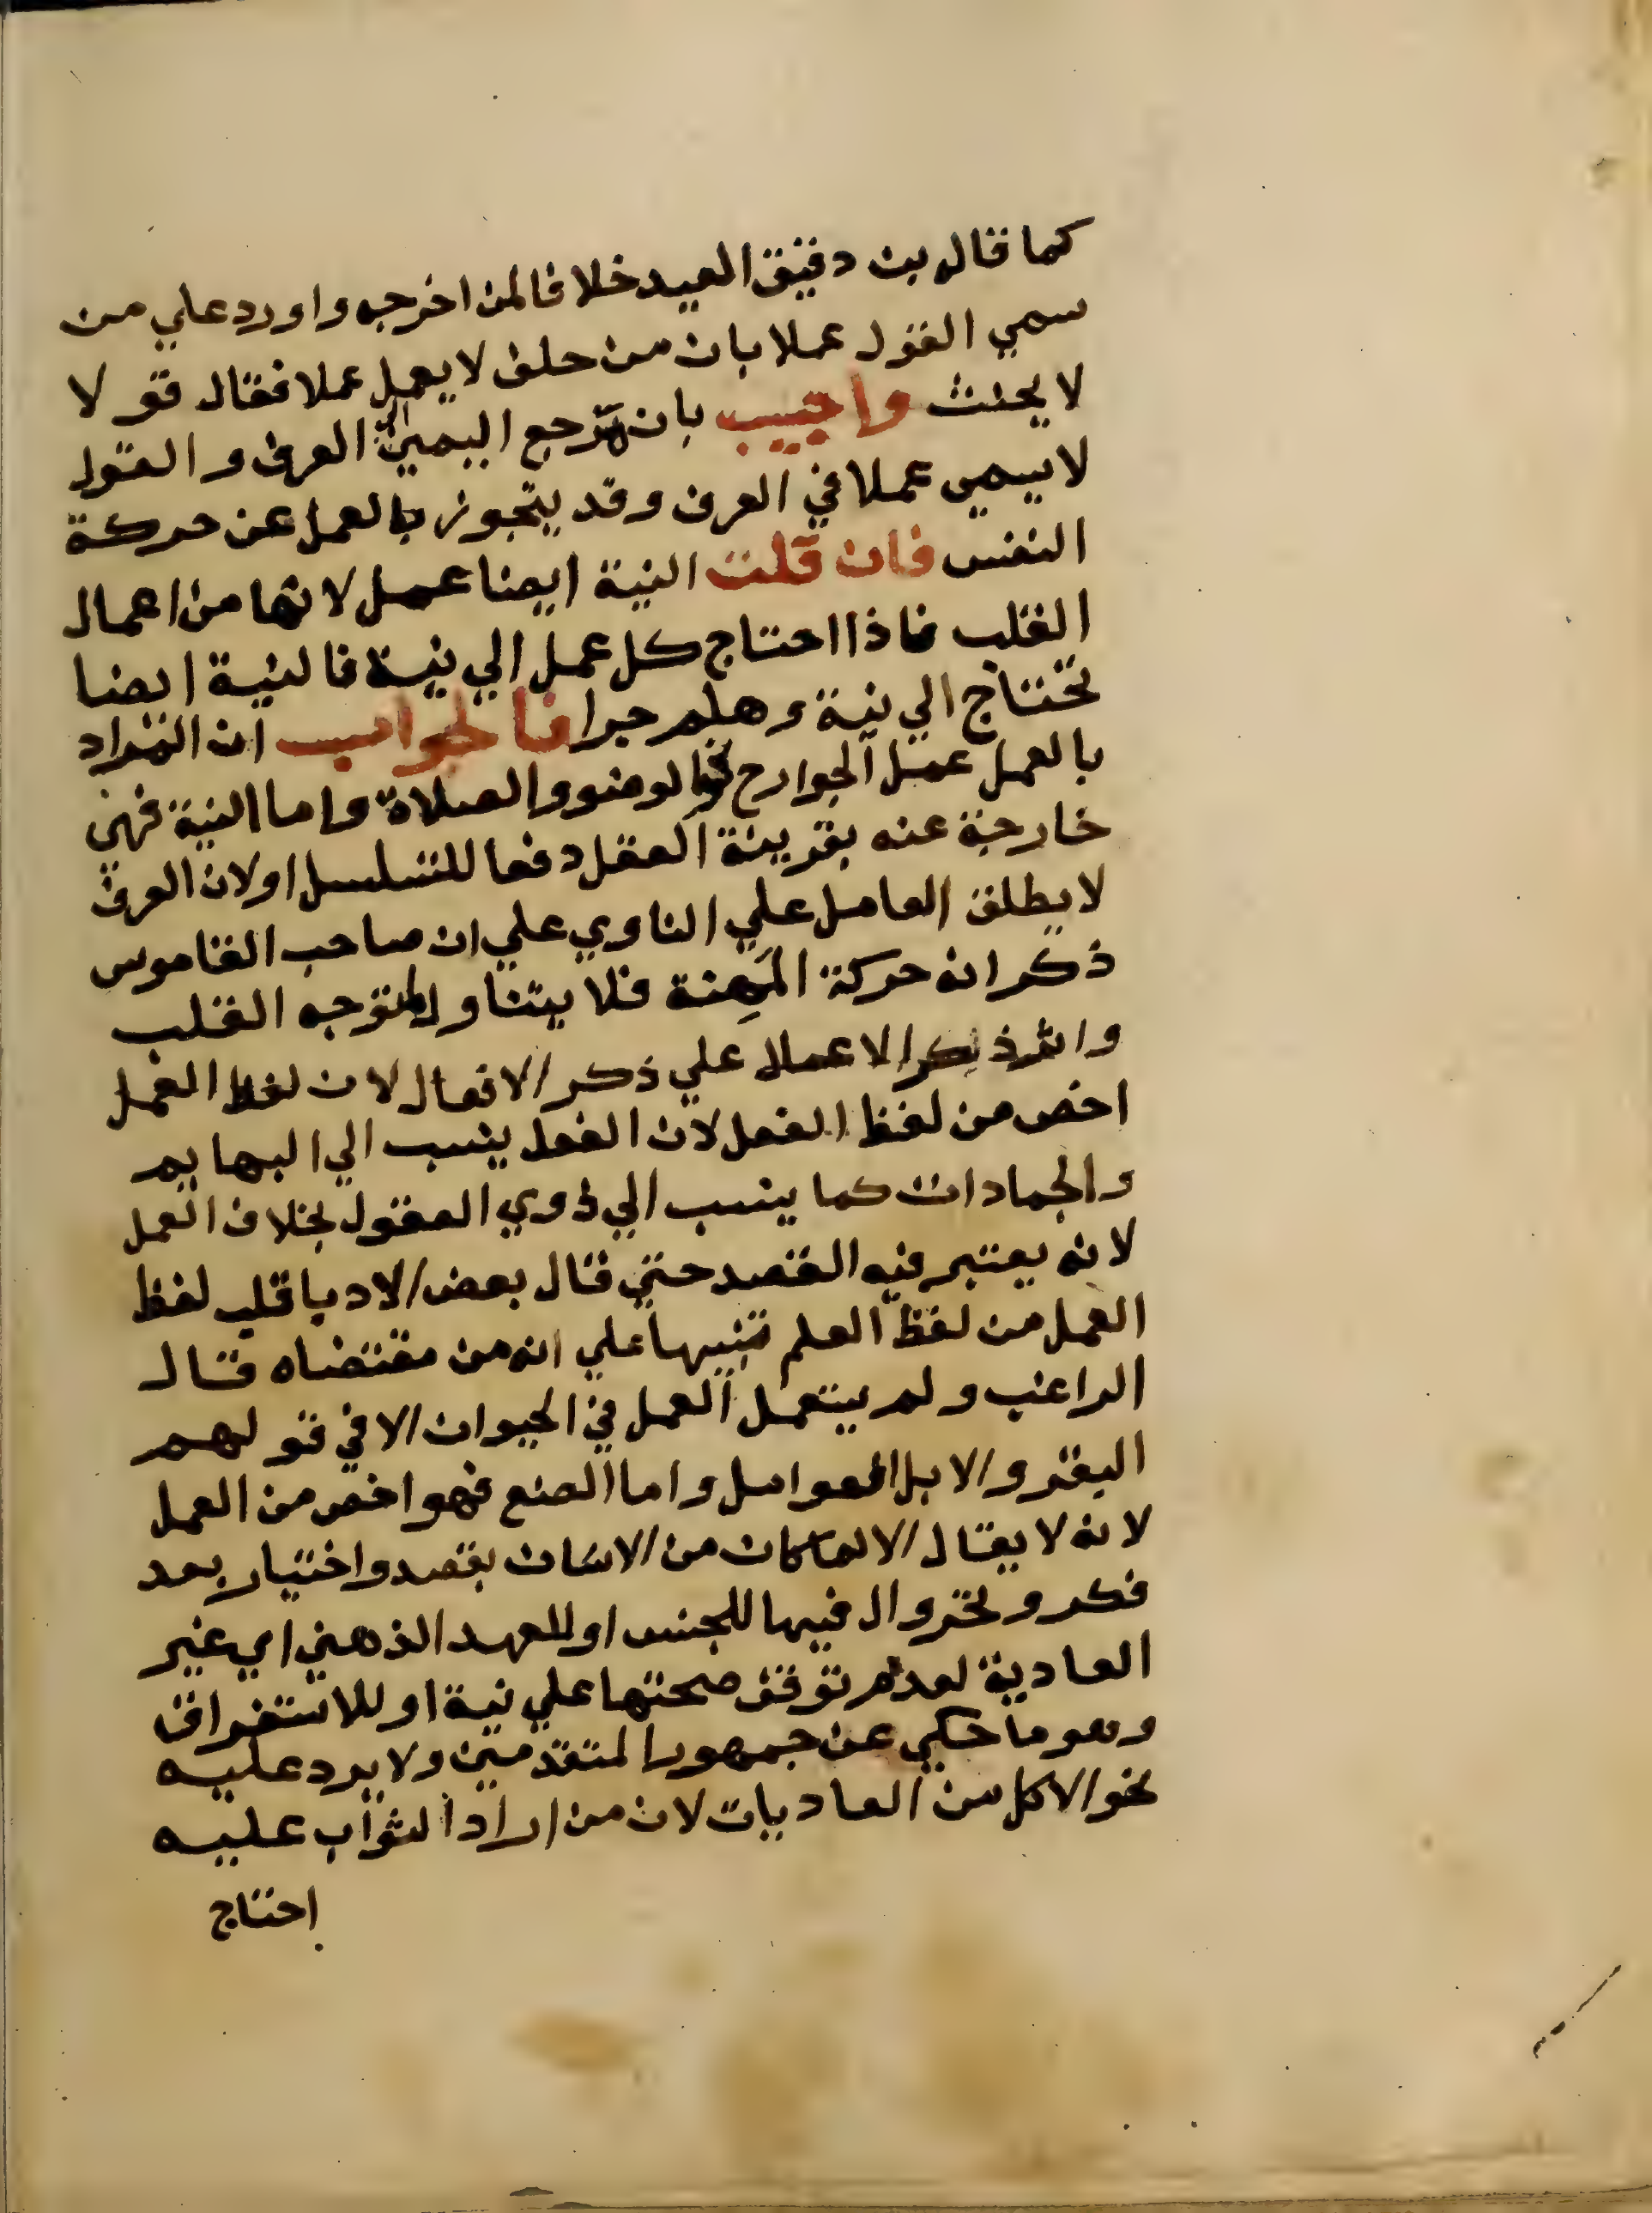 كما قاله بن دقيق العيد خلافا لمن اخرجه واورد علي من
سمي القول عملا بان من حلف لا يعمل عملا فقال قولا
لا يحنث واجيب بان مرجع اليمين الي العرف والقول
لا يسمي عملا في العرف وقد يتجوز بالعمل عن حركة
النفس فان قلت النية ايضا عمل لانها من اعمال
القلب فاذا احتاج كل عمل الي نية فالنية ايضا
تحتاج الي نية وهلم جرا فالجواب ان المراد
بالعمل عمل الجوارح نحو الوضو والصلاة واما النية فهي
خارجة عنه بقرينة العقل دفعا للتسلسل اولان العرف
لا يطلق العامل علي الناوي علي ان صاحب القاموس
ذكر انه حركة المهنة فلا يتناول توجه القلب
واثر ذكر الاعمال علي ذكر الافعال لان لفظ العمل
اخص من لفظ الفعل لان الفعل ينسب الي البهايم
والجمادات كما ينسب الي ذوي العقول بخلاف العمل
لانه يعتبر فيه القصد حتي قال بعض الادبا قلب لفظ
العمل من لفظ العلم تنبيها علي انه من مقتضاه قال
الراغب ولم يستعمل العمل في الحيوان الا في قولهم
البقر والابل العوامل واما الصنع فهو اخص من العمل
لانه لا يقال الا لما كان من الانسان بقصد واختيار بعد
فكر وتحر وال فيها للجنس او للعهد الذهني اي غير
العادية لعدم توقف صحتها علي نية او للاستغراق
وهو ما حكي عن جمهور المتقدمين ولا يرد عليه
نحو الاكل من العاديات لان من اراد الثواب عليه
احتاج